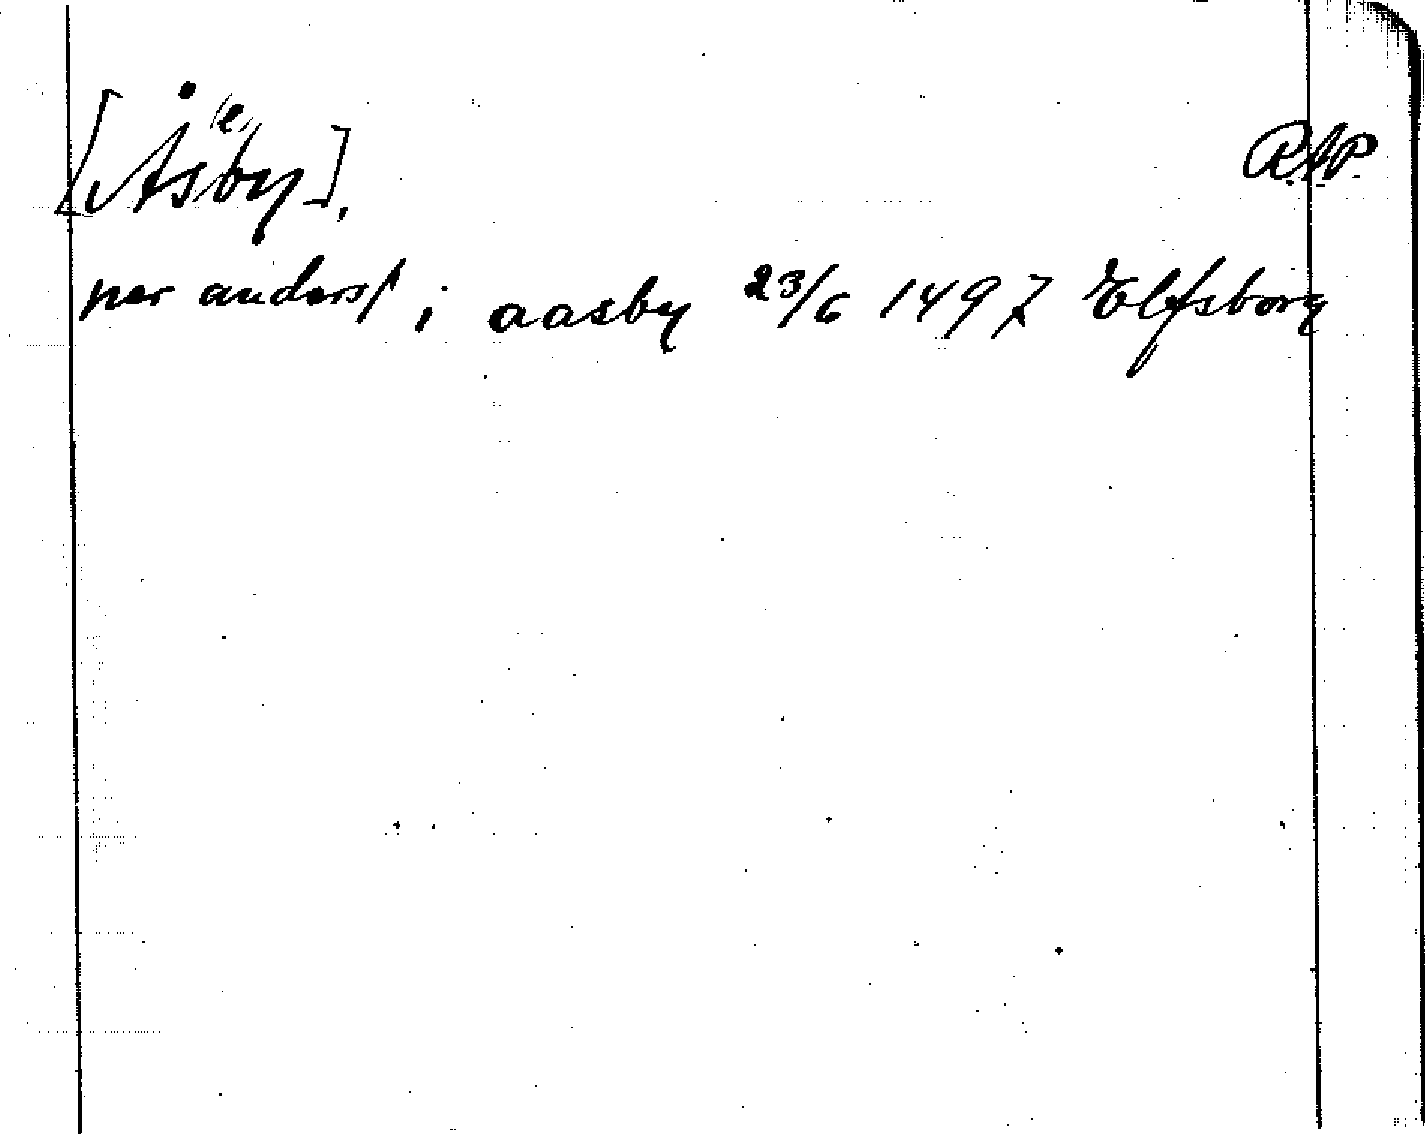 [Åsby], "e" RAP.
per anderss i aasby 23/6 1497 Elfsborg